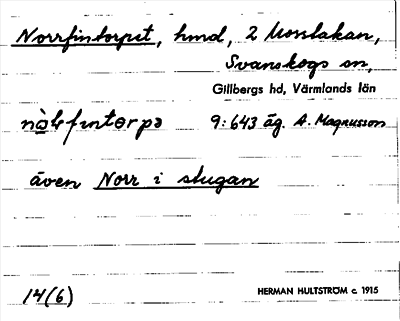 Norrfintorpet, hmd, 2 Mosstakan,
Svanskogs sn,
Gillbergs hd, Värmlands län
nò4fintɵrpə 9:643 äg. A. Magnusson
även Norr i stugan
14(6) HERMAN HULTSTRÖM c. 1915